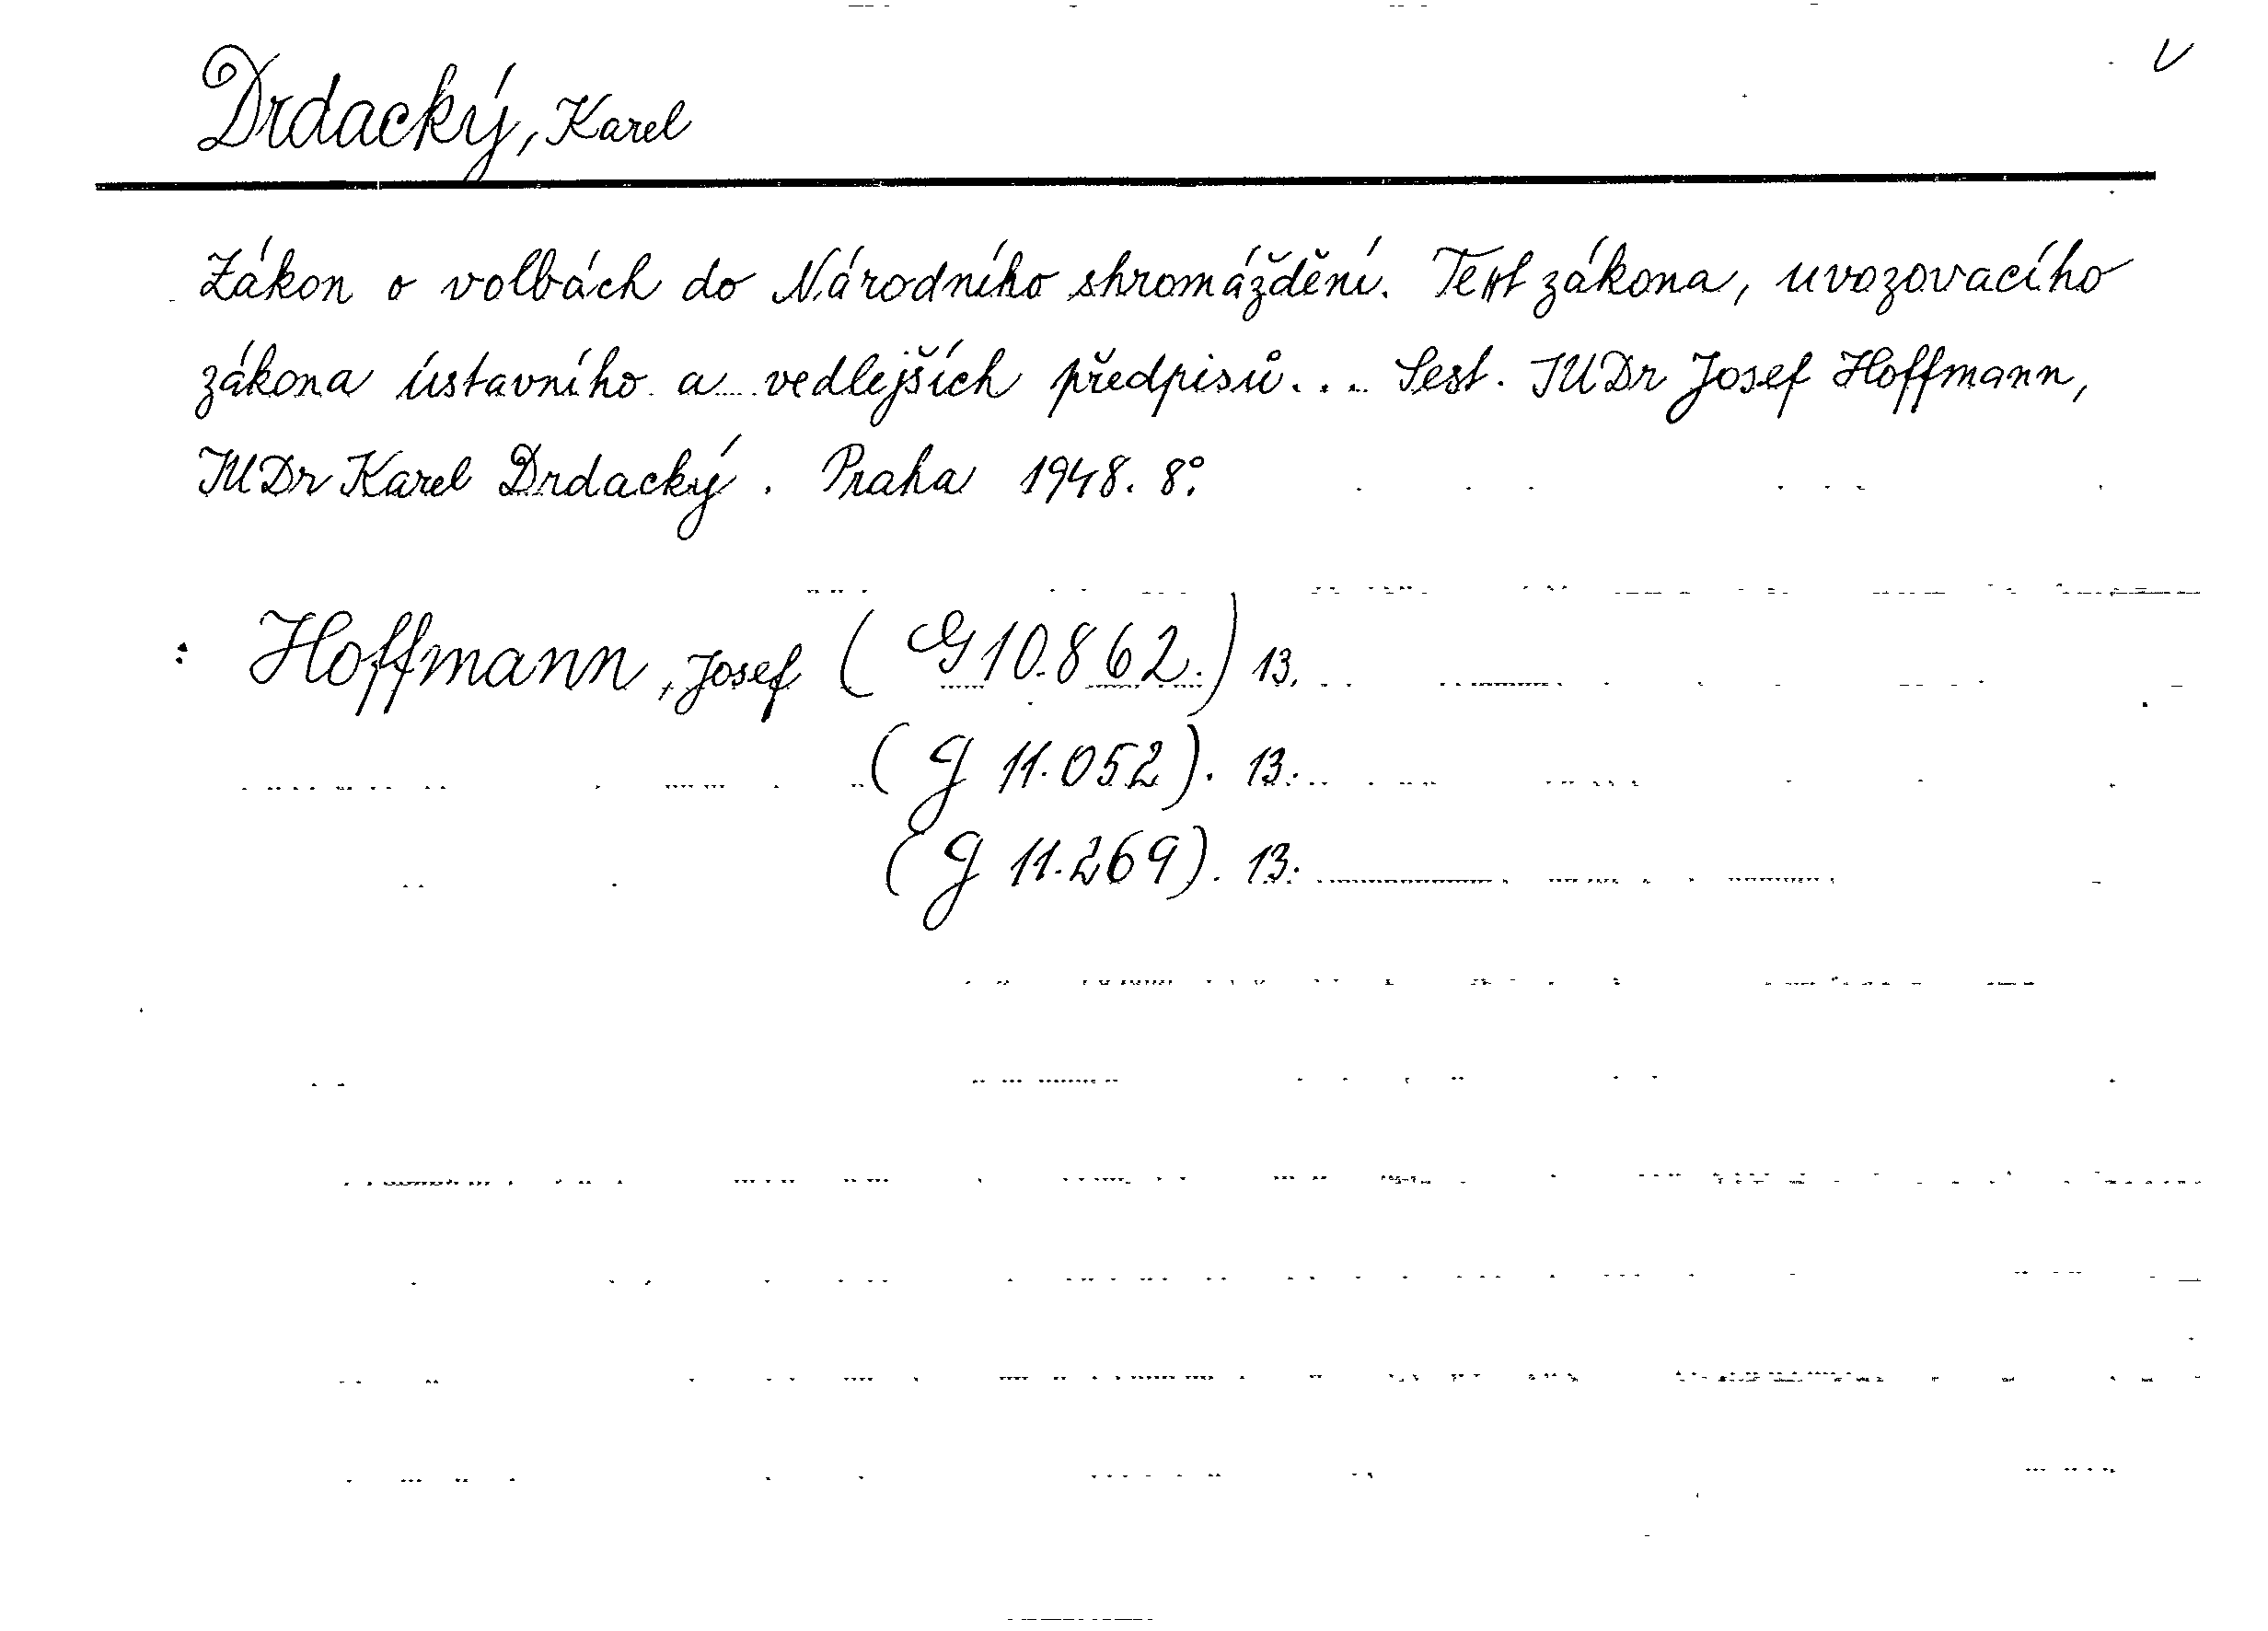 Drdacký, Karel
Zákon o volbách do Národního shromáždění. Text zákona, uvozovacího
zákona ústavního a vedlejších předpisů... Sest. JUDr Josef Hoffmann,
JUDr Karel Drdacký. Praha 1948. 8°.
: Hoffmann, Josef (G 10.862.) 13.
(G 11.052). 13.
(G 11.269). 13.